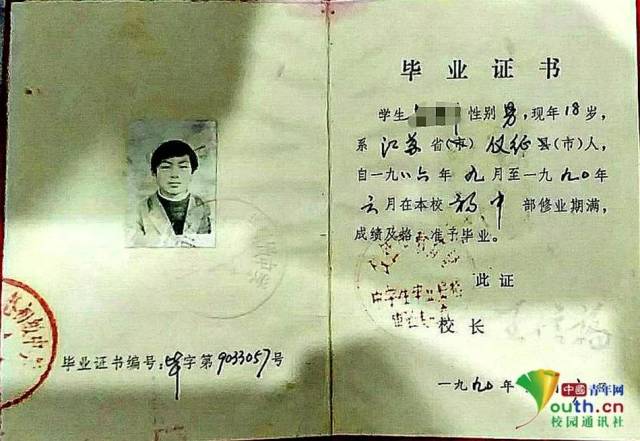 毕业证书
学生 性别男,现年18岁,
系江苏省(市)仪征县(市)人,
自一九八六年九月至一九九0年
六月在本校 中部修业期满,
成绩及格,准予毕业。
此证
校长
毕业证书编号:毕字第9033057号
一九九0年
中國青年网
youth.cn
校园通讯社